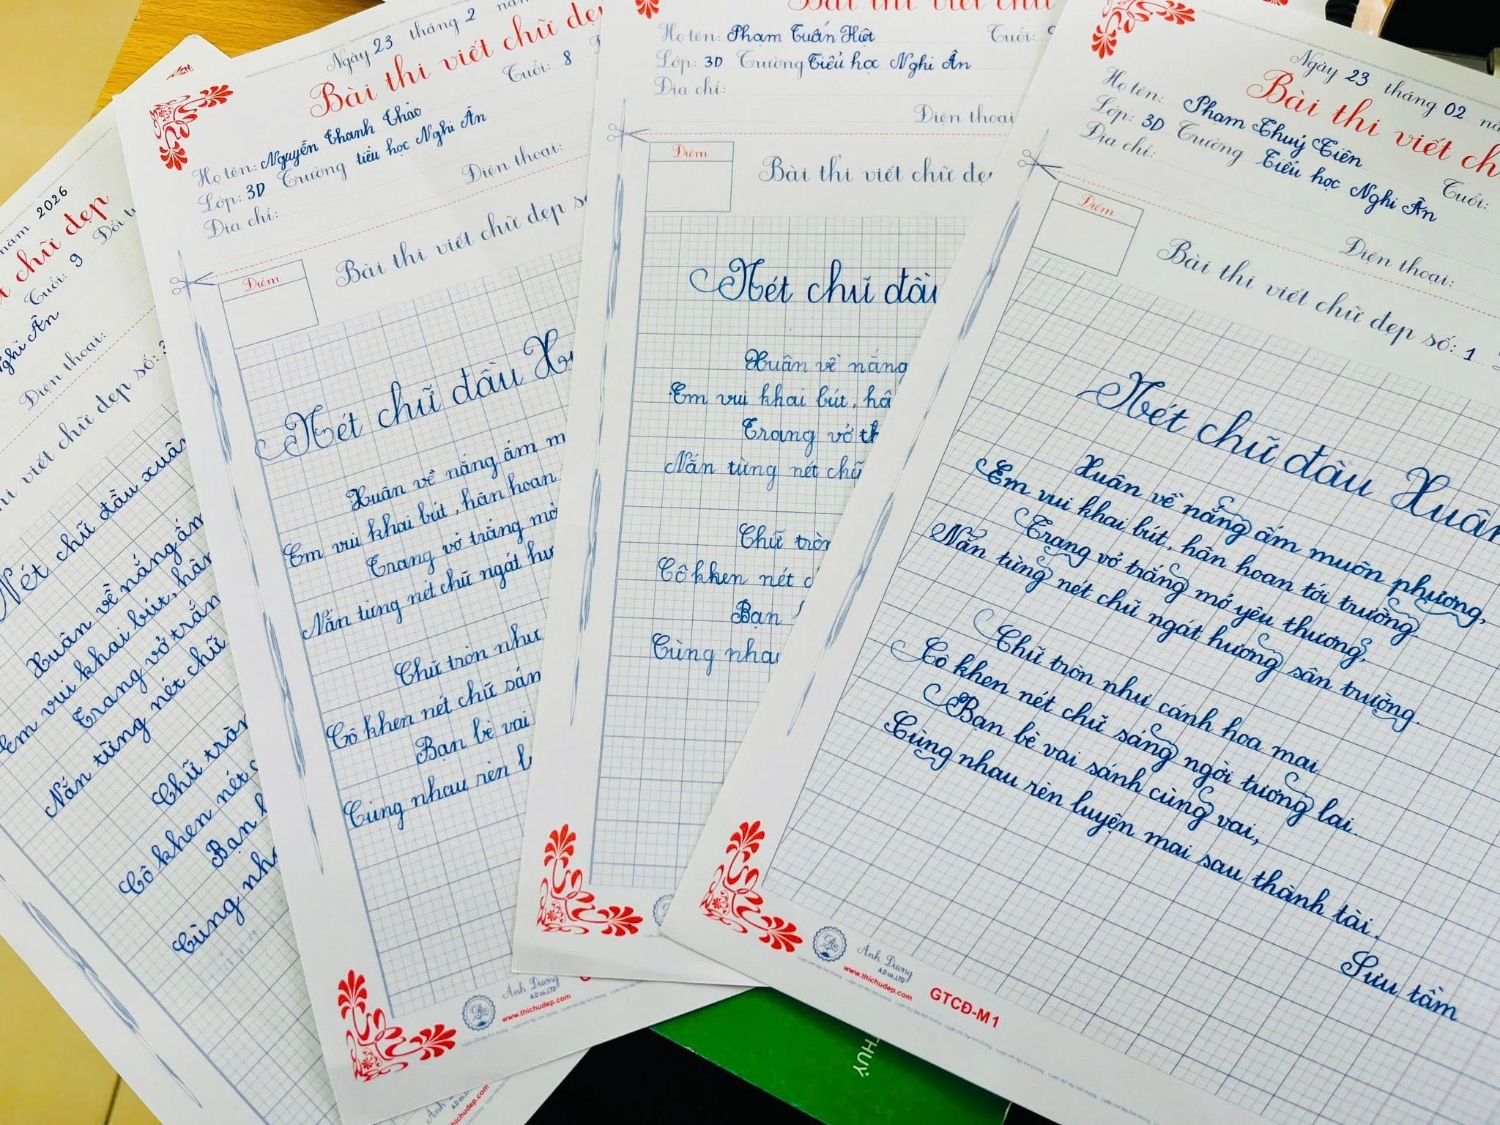 năm 2026
chữ đẹp
Tuổi: 9
Nghi Ân
Điện thoại:
viết chữ đẹp số:
Nét chữ đầu xuân
Xuân về nắng ấm
Em vui khai bút, hân
Trang vở trắn
Nắn từng nét chữ
Chữ tròn
Cô khen nét
Bạn
Cùng nha
Ngày 23 tháng 2
Bài thi viết chữ đẹ
Họ tên: Nguyễn Thanh Thảo
Tuổi: 8
Lớp: 3D Trường tiểu học Nghi Ân
Địa chỉ:
Điện thoại:
Điểm
Bài thi viết chữ đẹp s
Nét chữ đầu Xu
Xuân về nắng ấm m
Em vui khai bút, hân hoan
Trang vở trắng mở
Nắn từng nét chữ ngát hư
Chữ tròn như
Cô khen nét chữ sán
Bạn bè vai
Cùng nhau rèn l
Anh Dương
AD co.,LTD
www.thichudep.com
Bài thi viết chữ
Họ tên: Phạm Tuấn Kiệt
Tuổi:
Lớp: 3D Trường Tiểu học Nghi Ân
Địa chỉ:
Điện thoại
Điểm
Bài thi viết chữ đẹ
Nét chữ đầu
Xuân về nắng
Em vui khai bút, hâ
Trang vở t
Nắn từng nét chữ
Chữ tròn
Cô khen nét c
Bạn
Cùng nha
Ngày 23 tháng 02 nă
Bài thi viết ch
Họ tên: Phạm Thuỷ Tiên
Tuổi:
Lớp: 3D Trường Tiểu học Nghi Ân
Địa chỉ:
Điện thoại:
Điểm
Bài thi viết chữ đẹp số: 1
Nét chữ đầu Xuân
Xuân về nắng ấm muôn phương,
Em vui khai bút, hân hoan tới trường.
Trang vở trắng mở yêu thương,
Nắn từng nét chữ ngát hương sân trường.
Chữ tròn như cánh hoa mai
Cô khen nét chữ sáng ngời tương lai.
Bạn bè vai sánh cùng vai,
Cùng nhau rèn luyện mai sau thành tài.
Sưu tầm
Anh Dương
AD co.,LTD
www.thichudep.com
GTCĐ-M1
THUỶ